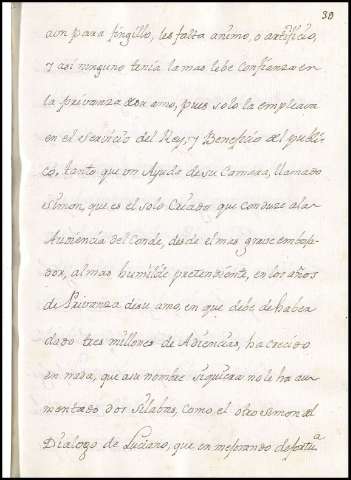 30
aun para fingillo, les falta animo, o artificio,
y asi ninguno tenía la mas lebe confienza en
la privanza de su amo, pues solo la empleava
en el servicio del Rey, y Beneficio del publi-
co, tanto que un Ayuda de su Camara, llamado
simon, que es el solo Criado que conduze a la
Audiencia del Conde, desde el mas grave emboja-
dor, al mas humilde pretendiente, en los años
de Privanza de su amo, en que debe de haber
dado tres millones de Adiencias, ha crecido
en nada, que a su nombre siquiera no le ha au-
mentado dos silabas, como el otro simon del
Dialogo de Luciano, que en mejorando de fortuª